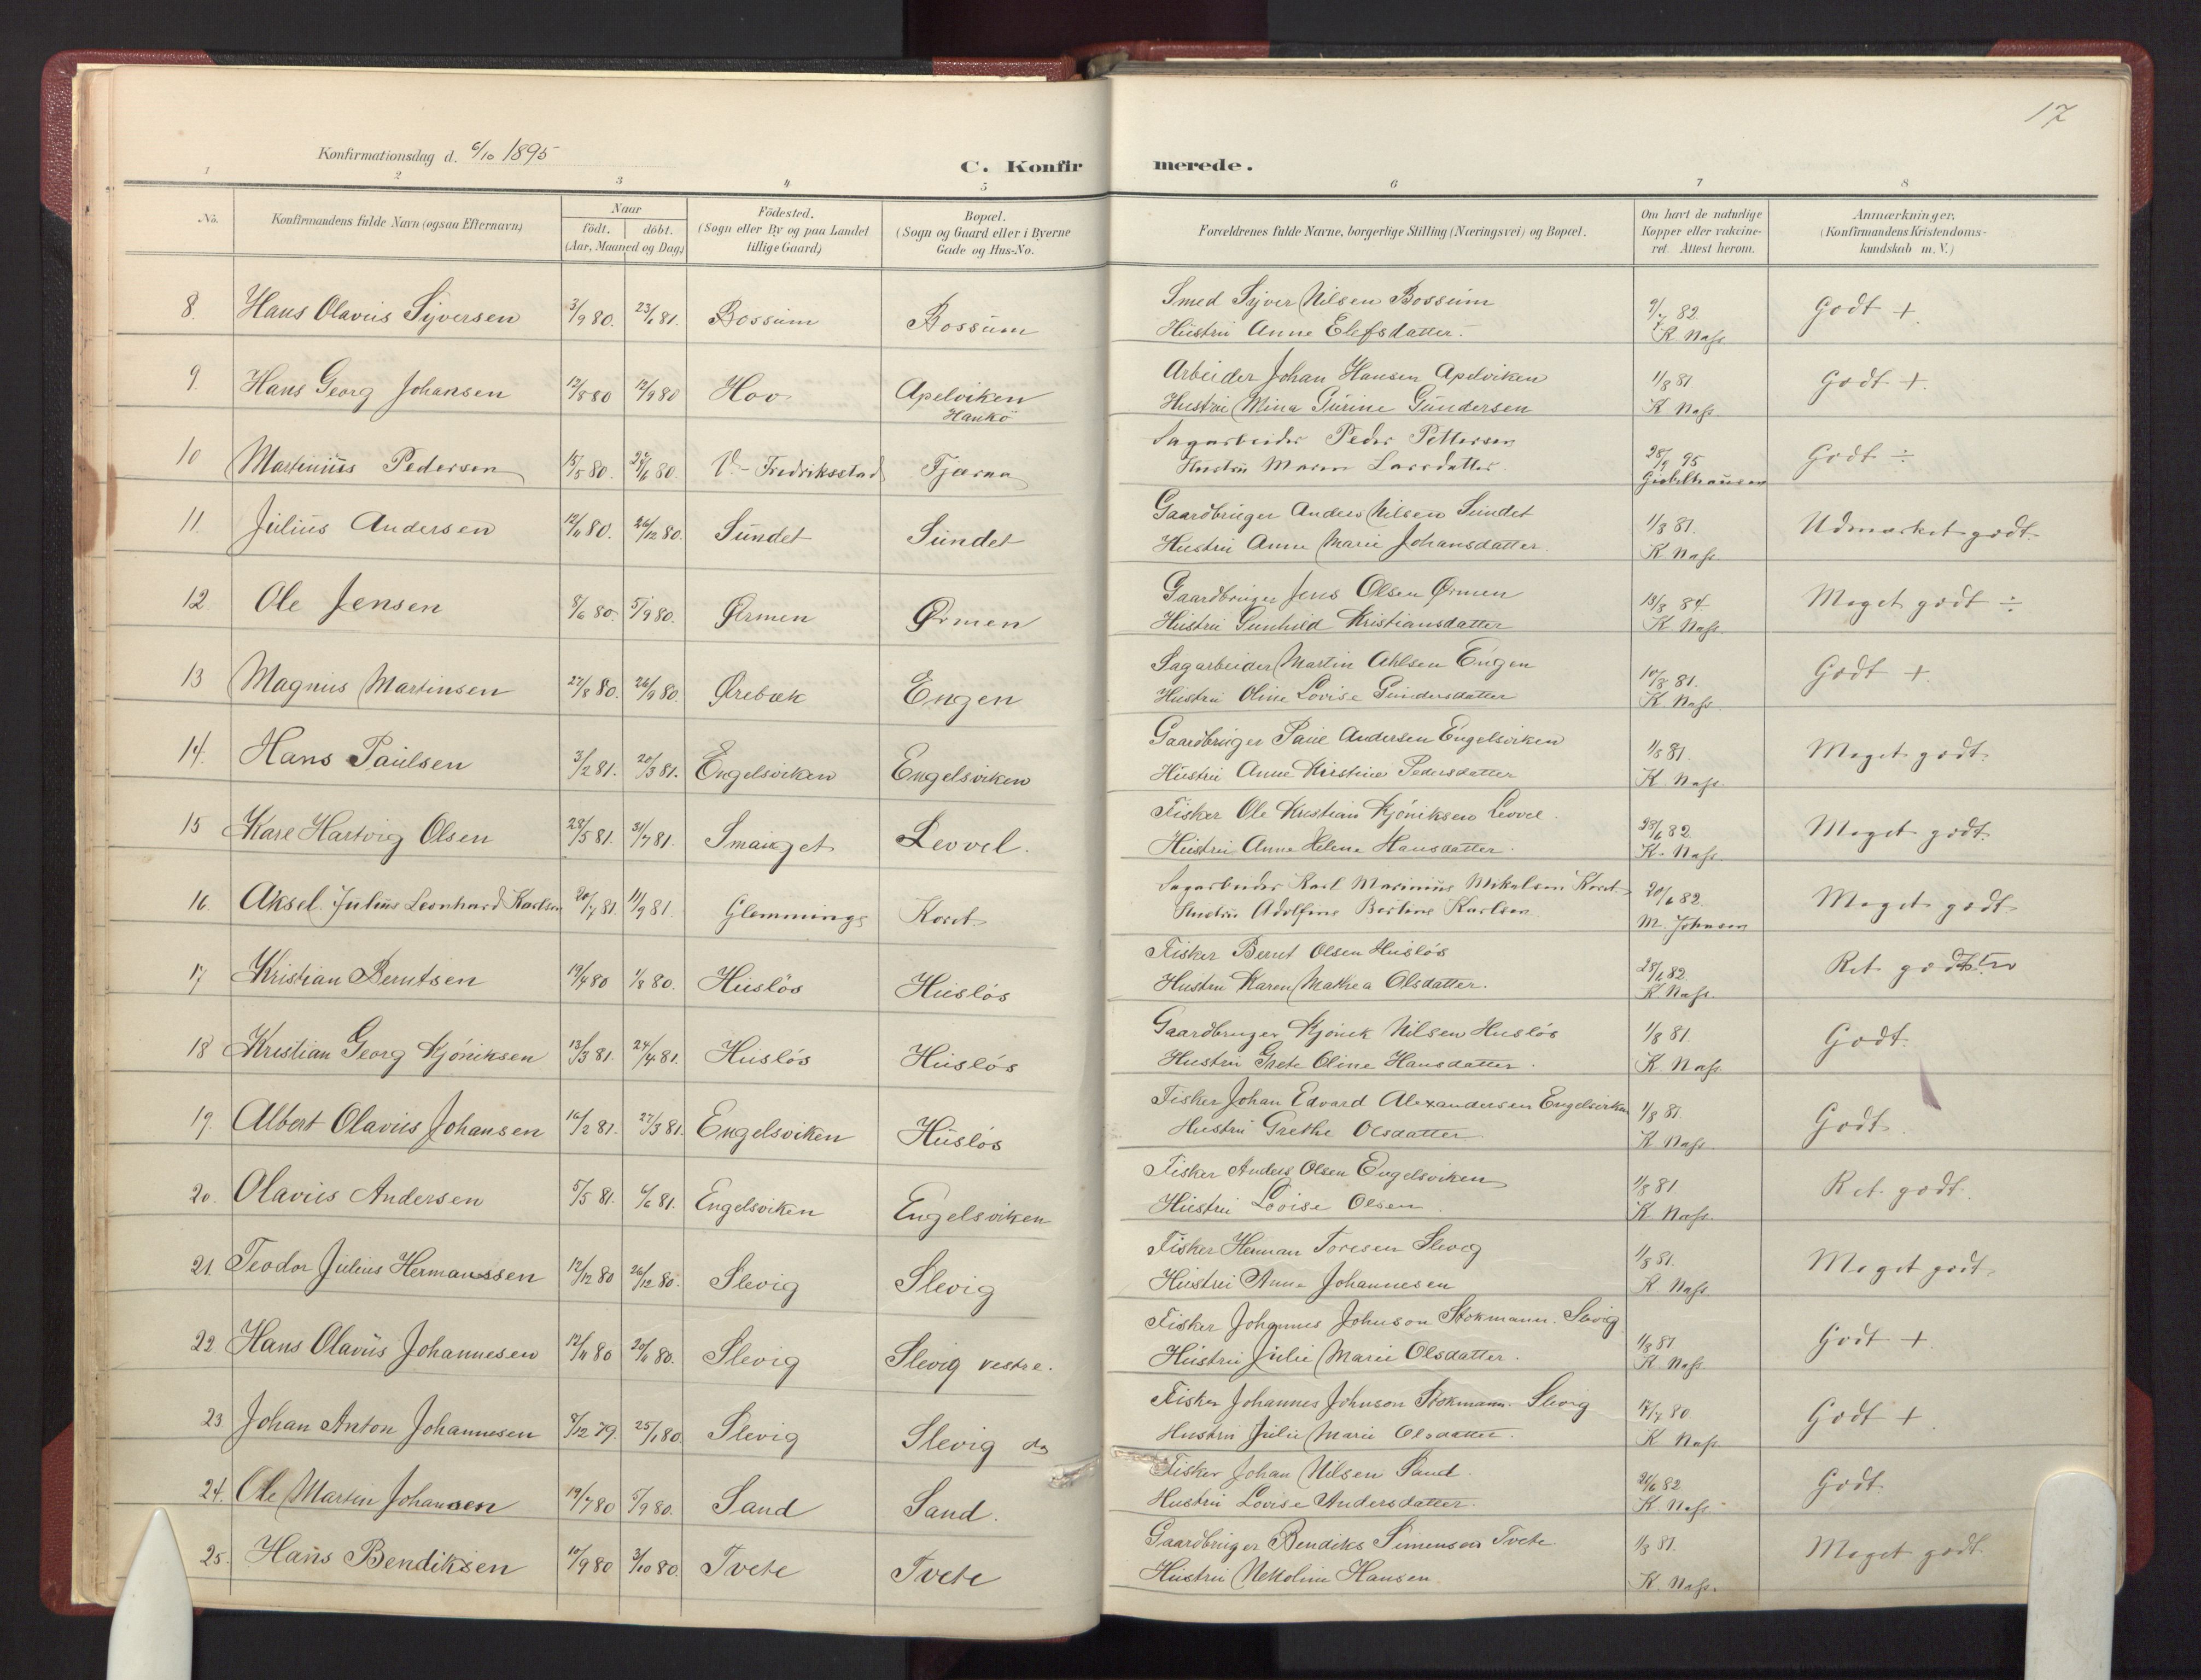 17
Konfirmationsdag d. 6/10 1895
C. Konfirmerede.
1 2 3 4 5 6 7 8
No. Konfirmandens fulde Navn (ogsaa Efternavn) Naar födt. döbt. (Aar, Maaned og Dag) Födested. (Sogn eller By og paa Landet tillige Gaard) Bopæl. (Sogn og Gaard eller i Byerne Gade og Hus-No. Forældrenes fulde Navne, borgerlige Stilling (Næringsvei) og Bopæl. Om havt de naturlige Kopper eller vakcineret. Attest herom. Anmærkninger. (Konfirmandens Kristendomskundskab m. V.)
8. Hans Olavus Syversen 3/9 80. 23/1 81. Bossum Bossum Smed Syver Nilsen Bossum 82 Godt +
Hustru Anne Elefsdatter. K. Nass.
9. Hans Georg Johansen 12/8 80 12/9 80 Hov Apelviken Hankö Arbeider Johan Hansen Apelviken 1/8 81 Godt +.
Hustru Mina Gurine Gundersen K Nass
10 Martinius Pedersen 15/5 80. 27/6 80. V. Fredriksstad Tjærna Sagarbeider Peder Pettersen 28/9 95 Godt ÷
Hustru Maren Larsdatter.
11. Julius Andersen 12/11 80. 26/12 80. Sundet Sundet Gaardbruger Anders Nilsen Sundet 1/8 81. Udmærket godt.
Hustru Anne Marie Johansdatter. K Nass.
12 Ole Jensen 8/6 80. 5/9 80. Ørmen Ørmen Gaardbruger Jens Olsen Ørmen 13/8 84 Meget godt ÷
Hustru Gunhild Kristiansdatter K Nass.
13 Magnus Martinsen 27/8 80. 26/9 80 Ørebæk Engen Sagarbeider Martin Ahlsen Engen 10/8 81. Godt +
Hustru Oline Lovise Gundersdatter K Nass.
14. Hans Paulsen 3/2 81. 20/3 81. Engelsviken Engelsviken Gaardbruger Paul Andersen Engelsviken 1/8 81. Meget godt.
Hustru Anne Kirstine Pedersdatter K Nass.
15 Karl Hartvig Olsen 28/5 81. 31/7 81. Smauget Levvel. Fisker Ole Kristian Kjöniksen Levvel. 28/6 82 Meget godt.
Hustru Anne Helene Hansdatter. K. Nass.
16. Aksel Julius Leonhard Karlsen 20/7 81. 11/9 81. Glemminge Korst Sagarbeider Karl Marinius Mikalsen Korst 20/6 82 Meget godt
Hustru Adolfine Bertine Karlsen M. Johnson
17 Kristian Berntsen 19/4 80 1/8 80. Huslös Huslös Fisker Bernt Olsen Huslös 28/6 82 Ret godt
Hustru Karen Mathea Olsdatter. K Nass.
18 Kristian Georg Kjöniksen 13/3 81. 24/4 81. Huslös Huslös Gaardbruger Kjönik Nilsen Huslös 1/8 81. Godt.
Hustru Grete Oline Hansdatter. K Nass.
19. Albert Olavus Johansen 16/2 81. 27/3 81. Engelsviken Huslös Fisker Johan Edvard Alexandersen Engelsviken 1/8 81. Godt.
Hustru Grethe Olsdatter K Nass.
20. Olavus Andersen 5/5 81. 6/6 81. Engelsviken Engelsviken Fisker Anders Olsen Engelsviken 1/8 81. Ret godt.
Hustru Lovise Olsen K Nass.
21. Teodor Julius Hermanssen 12/12 80 26/12 80. Slevig Slevig Fisker Herman Toresen Slevig 1/8 81. Meget godt
Hustru Anne Johannesen K. Nass.
22 Hans Olavus Johannesen 12/11 80 80. Slevig Slevig vestre. Fisker Johannes Johnson Stokmann. Slevig 1/8 81 Godt +
Hustru Julie Marie Olsdatter. K. Nass.
23 Johan Anton Johannesen 8/12 79. 25/1 80. Slevig Slevig do Fisker Johannes Johnson Stokmann. Slevig 17/7 80 Godt +
Hustru Julie Marie Olsdatter. K Nass
24. Ole Martin Johansen 19/7 80 5/9 80. Sand Sand. Fisker Johan Nilsen Sand. 82 Godt
Hustru Lovise Andersdatter. K. Nass.
25. Hans Bendiksen 10/9 80 3/10 80. Tvete Tvete Gaardbruger Bendiks Simensen Tvete 1/8 81. Meget godt
Hustru Nettoline Hansen. K Nass.